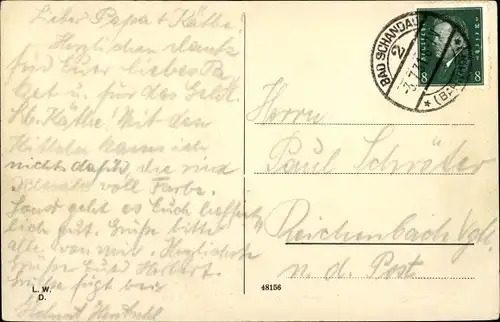 Lieber Papa + Käthe.
Herzlichen Dank
für Euer liebes Pa-
ket u. für das Geld.
Lb. Käthe! Mit den
Kitteln kann ich
nichts dafür, die sind
voll Farbe.
Sonst geht es Euch hoffent-
lich gut. Grüße bitte
alle von mir. Herzlichste
Grüße Euer Herbert.
Grüße fügt bei
Helmut
L. W.
D.
48156
BAD SCHANDAU
2
8 8
Herrn
Paul Schröder
Reichenbach Vgtl.
n. d. Post